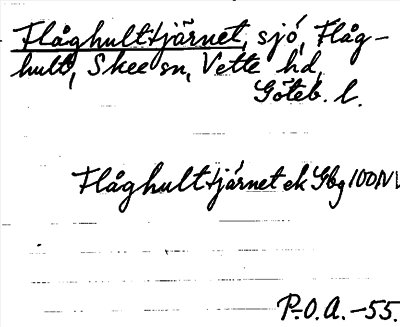 Flåghulttjärnet, sjö, Flåg-
hult, Skee sn, Vette hd,
Göteb. l.
Flåghulttjärnet ek Gbg 100NV
P.O.A. -55.